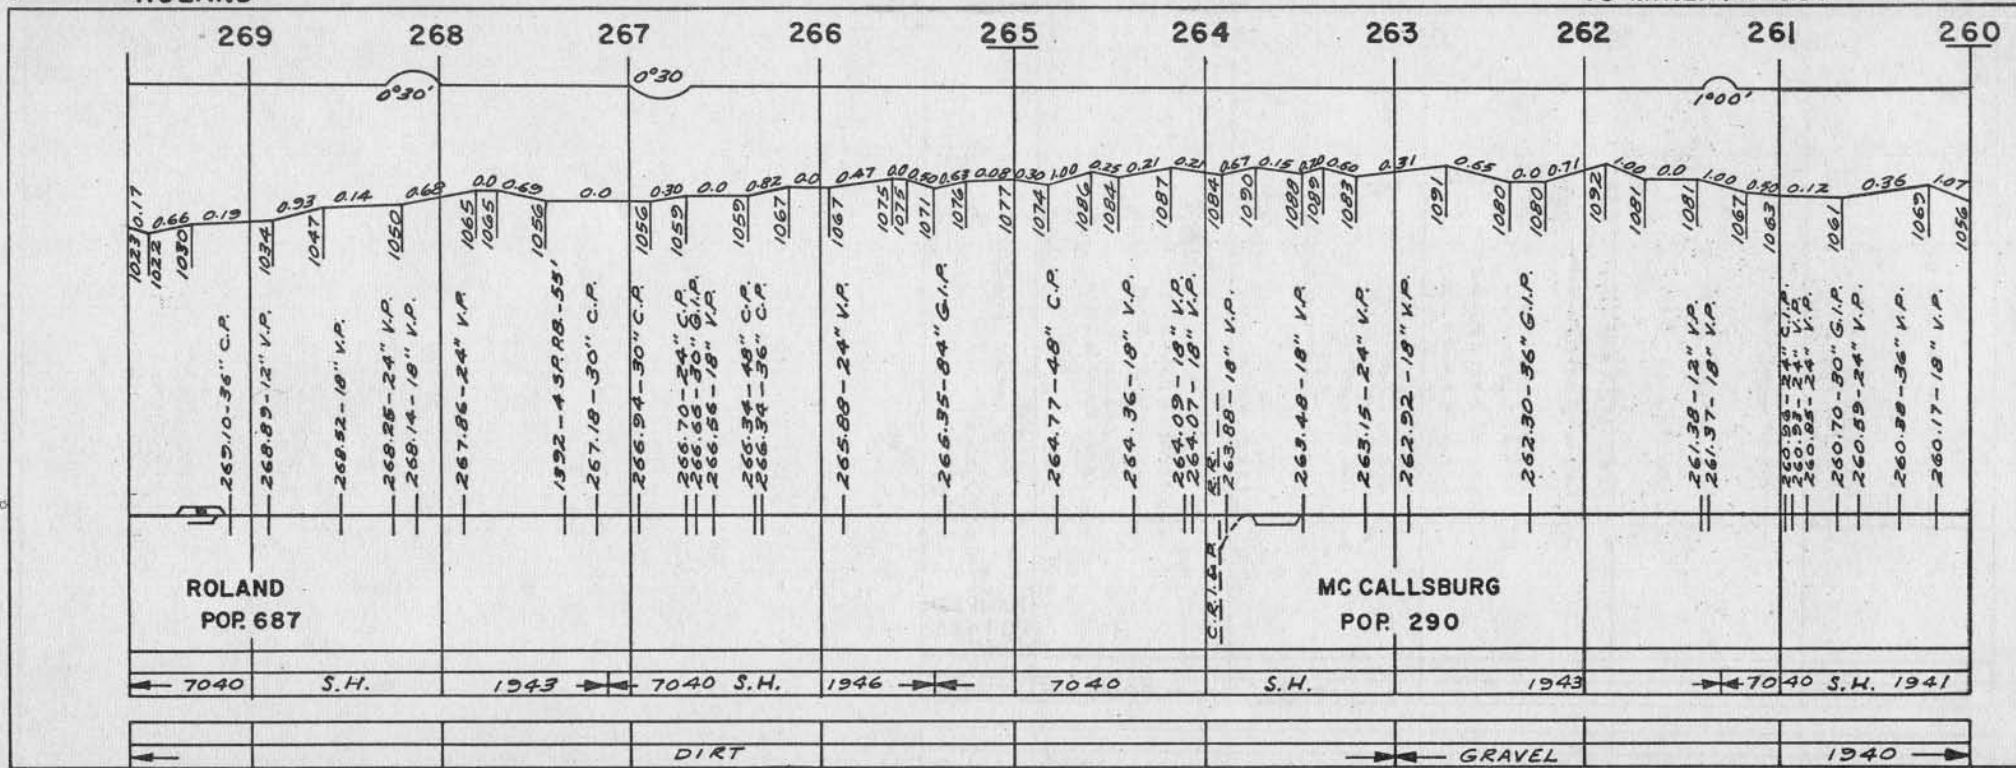 269 268 267 266 265 264 263 262 261 260
0°30' 0°30 1°00'
0.17 0.66 0.19 0.93 0.14 0.68 0.0 0.69 0.0 0.30 0.0 0.82 0.0 0.47 0.0 0.50 0.63 0.08 0.30 1.00 0.25 0.21 0.21 0.67 0.15 0.60 0.31 0.65 0.0 0.71 1.00 0.0 1.00 0.50 0.12 0.36 1.07
1023 1022 1030 1034 1047 1050 1065 1065 1056 1056 1059 1059 1067 1067 1075 1075 1071 1076 1077 1074 1086 1084 1087 1084 1090 1088 1089 1083 1091 1080 1080 1092 1081 1081 1067 1063 1061 1069 1056
269.10-36" C.P.
268.89-12" V.P.
268.52-18" V.P.
268.25-24" V.P.
268.14-18" V.P.
267.86-24" V.P.
1392-4 S.P.R.B.-55'
267.18-30" C.P.
266.94-30" C.P.
266.70-24" C.P.
266.65-30" G.I.P.
266.56-18" V.P.
266.34-48" C.P.
266.34-36" C.P.
265.88-24" V.P.
266.35-84" G.I.P.
264.77-48" C.P.
264.36-18" V.P.
264.09-18" V.P.
264.07-18" V.P.
R.R.
263.88-18" V.P.
263.48-18" V.P.
263.15-24" V.P.
262.92-18" V.P.
262.30-36" G.I.P.
261.38-12" V.P.
261.37-18" V.P.
260.96-24" C.I.P.
260.93-24" V.P.
260.85-24" V.P.
260.70-30" G.I.P.
260.59-24" V.P.
260.38-36" V.P.
260.17-18" V.P.
C.R.I.&P.
ROLAND
POP. 687
MC CALLSBURG
POP. 290
7040 S.H. 1943 7040 S.H. 1946 7040 S.H. 1943 7040 S.H. 1941
DIRT GRAVEL 1940